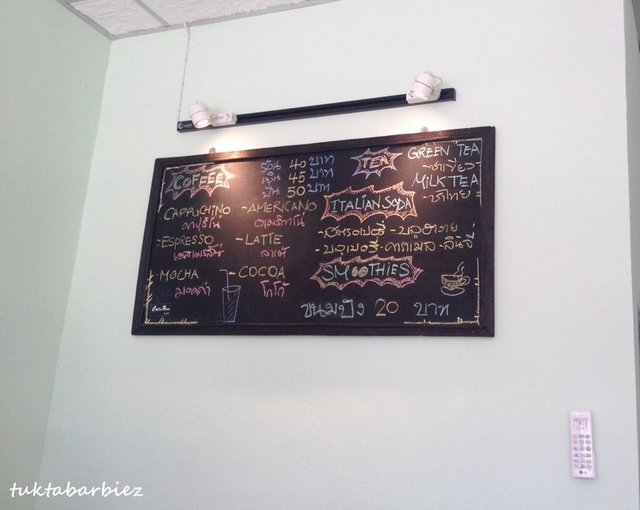 COFFEE
ร้อน 40 บาท
เย็น 45 บาท
ปั่น 50 บาท
CAPPUCHINO
คาปูชิโน่
-AMERICANO
อเมริกาโน่
-ESPRESSO
เอสเพรสโซ่
-LATTE
ลาเต้
-MOCHA
มอคค่า
-COCOA
โกโก้
TEA
GREEN TEA
-ชาเขียว
MILK TEA
-ชาไทย
ITALIAN SODA
-สตรอเบอรี่ -บลูฮาวาย
-บลูเบอรี่ -คาราเมล -ลิ้นจี่
SMOOTHIES
ขนมปัง 20 บาท
tuktabarbiez